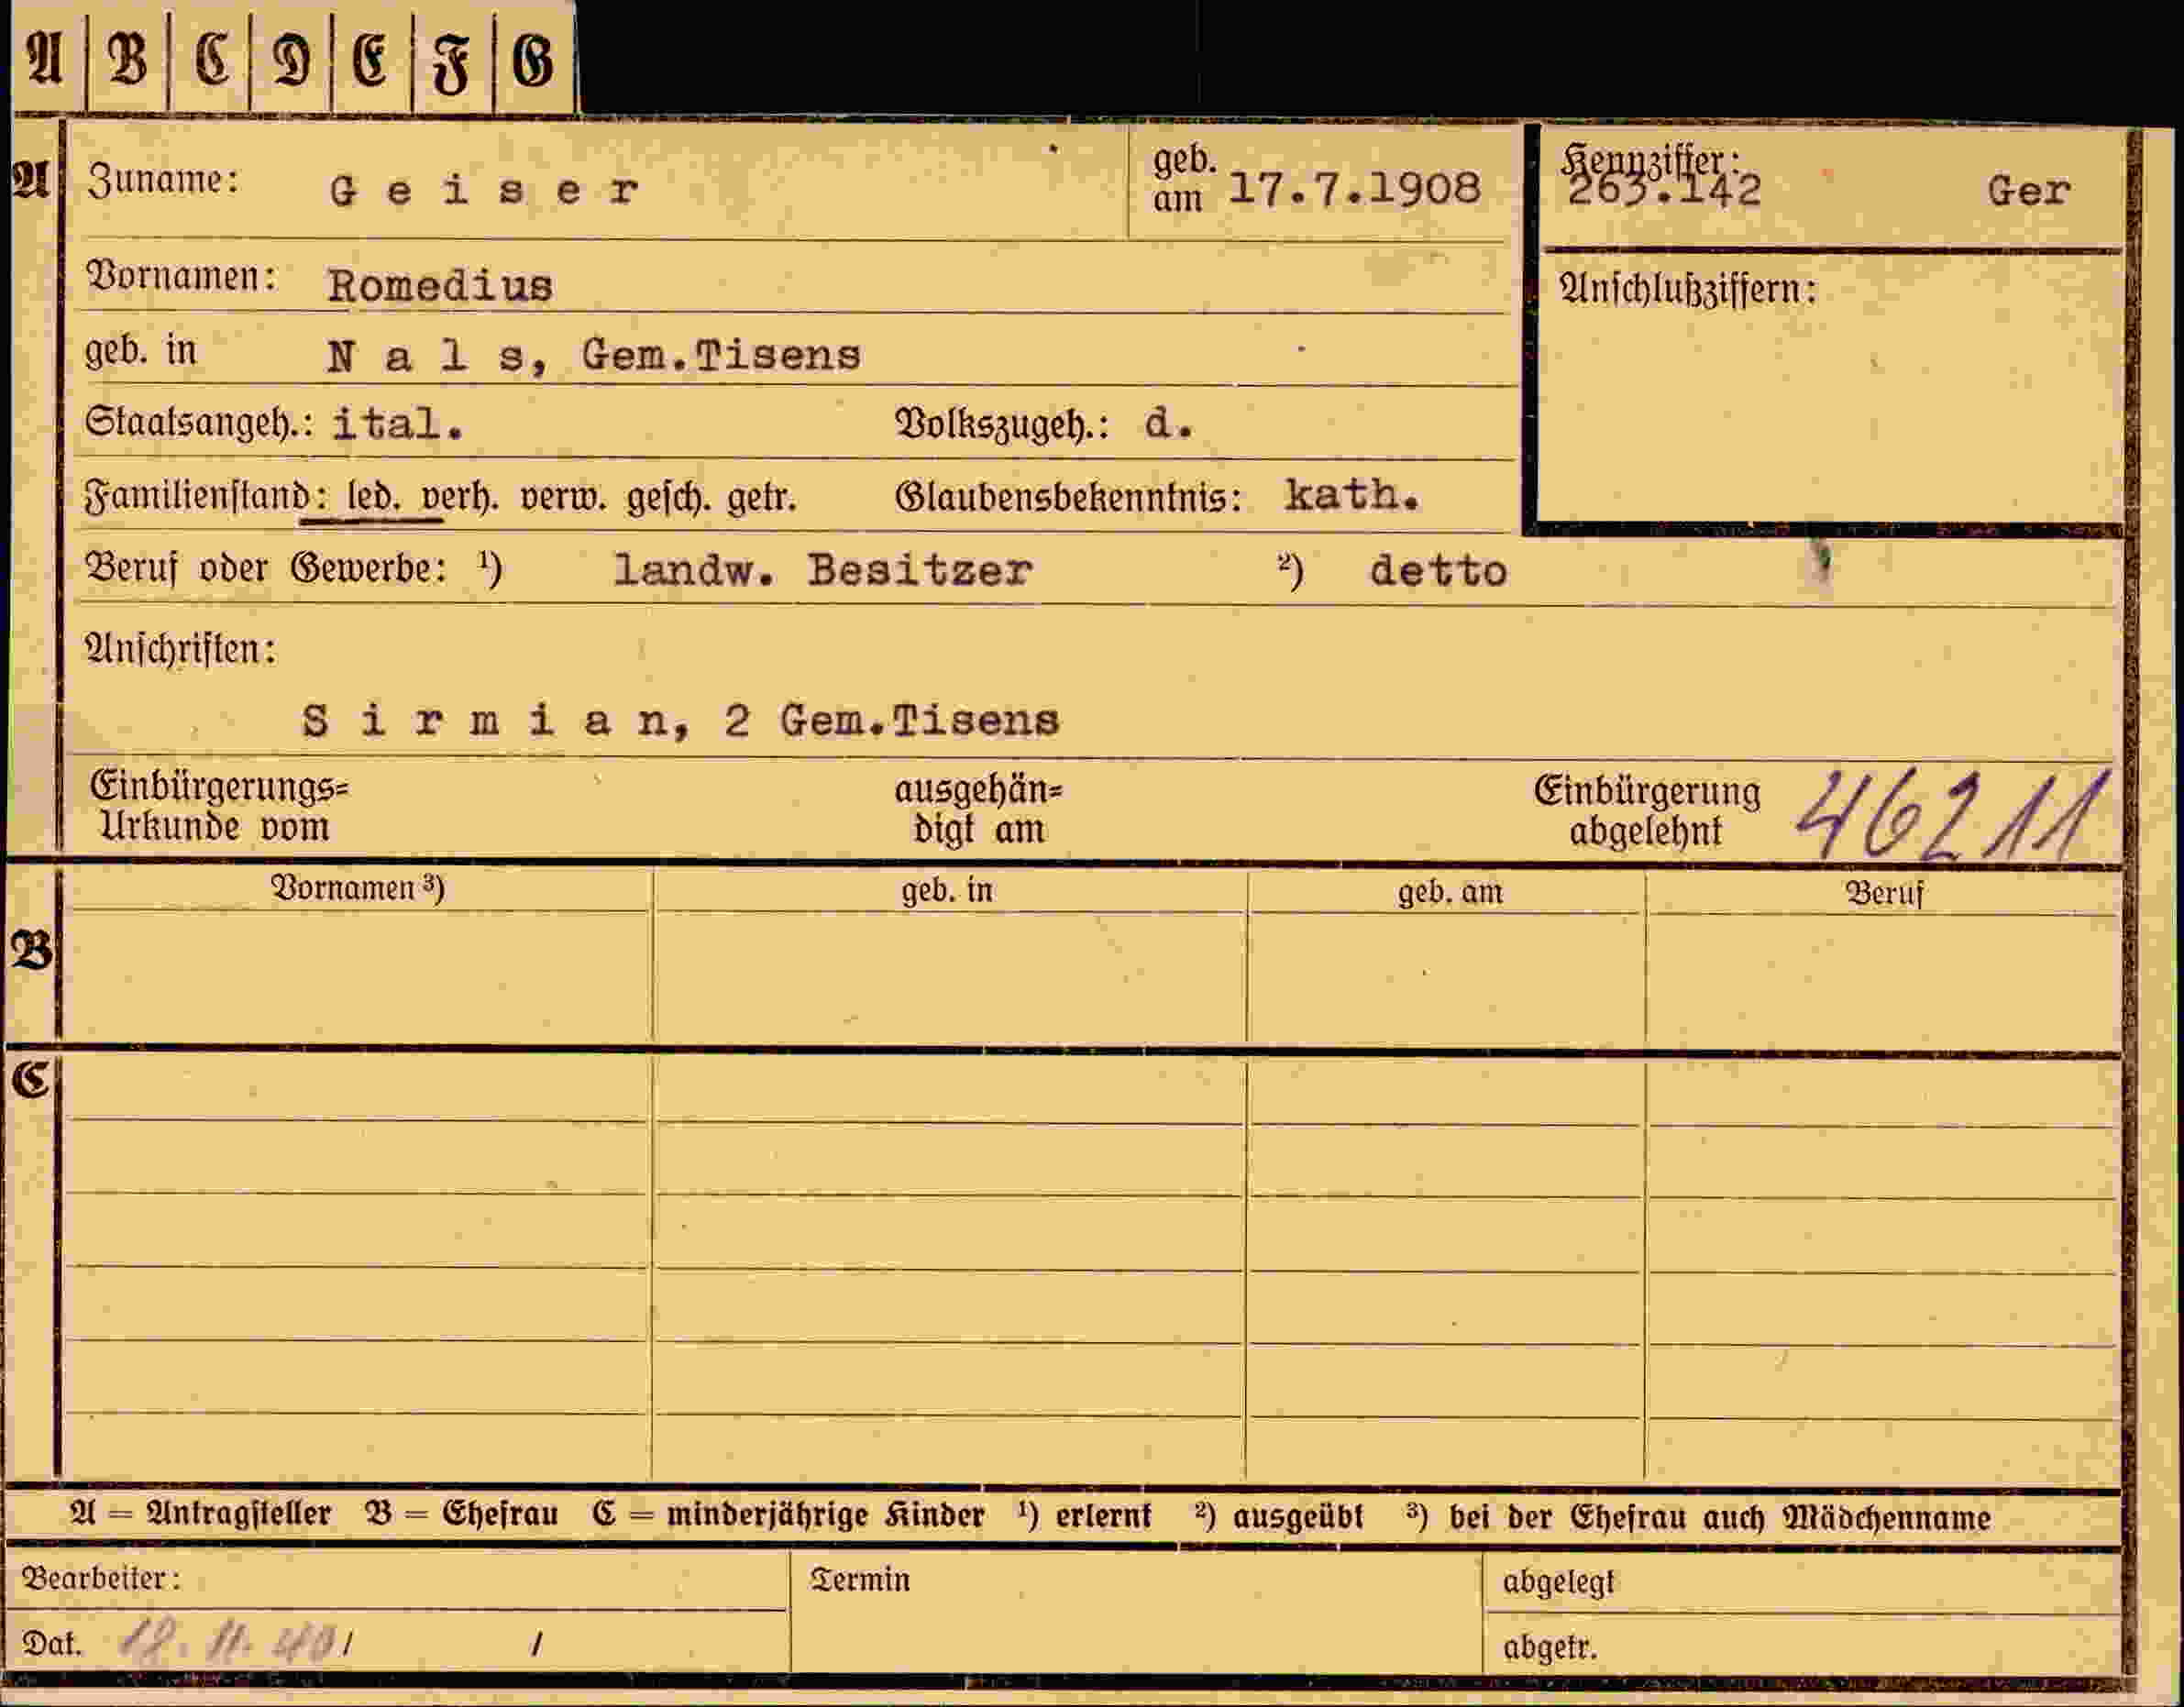 A B C D E F G
A Zuname: G e i s e r geb. am 17.7.1908 Kennziffer: 263.142 Ger
Vornamen: Romedius Anschlußziffern:
geb. in N a l s, Gem.Tisens
Staatsangeh.: ital. Volkszugeh.: d.
Familienstand: led. verh. verw. gesch. getr. Glaubensbekenntnis: kath.
Beruf oder Gewerbe: ¹) landw. Besitzer ²) detto
Anschriften:
S i r m i a n, 2 Gem.Tisens
Einbürgerungs= ausgehän= Einbürgerung 46211
Urkunde vom digt am abgelehnt
Vornamen ³) geb. in geb. am Beruf
B
C
A = Antragsteller B = Ehefrau C = minderjährige Kinder ¹) erlernt ²) ausgeübt ³) bei der Ehefrau auch Mädchenname
Bearbeiter: Termin abgelegt
Dat. 18. 11. 40 / / abgetr.